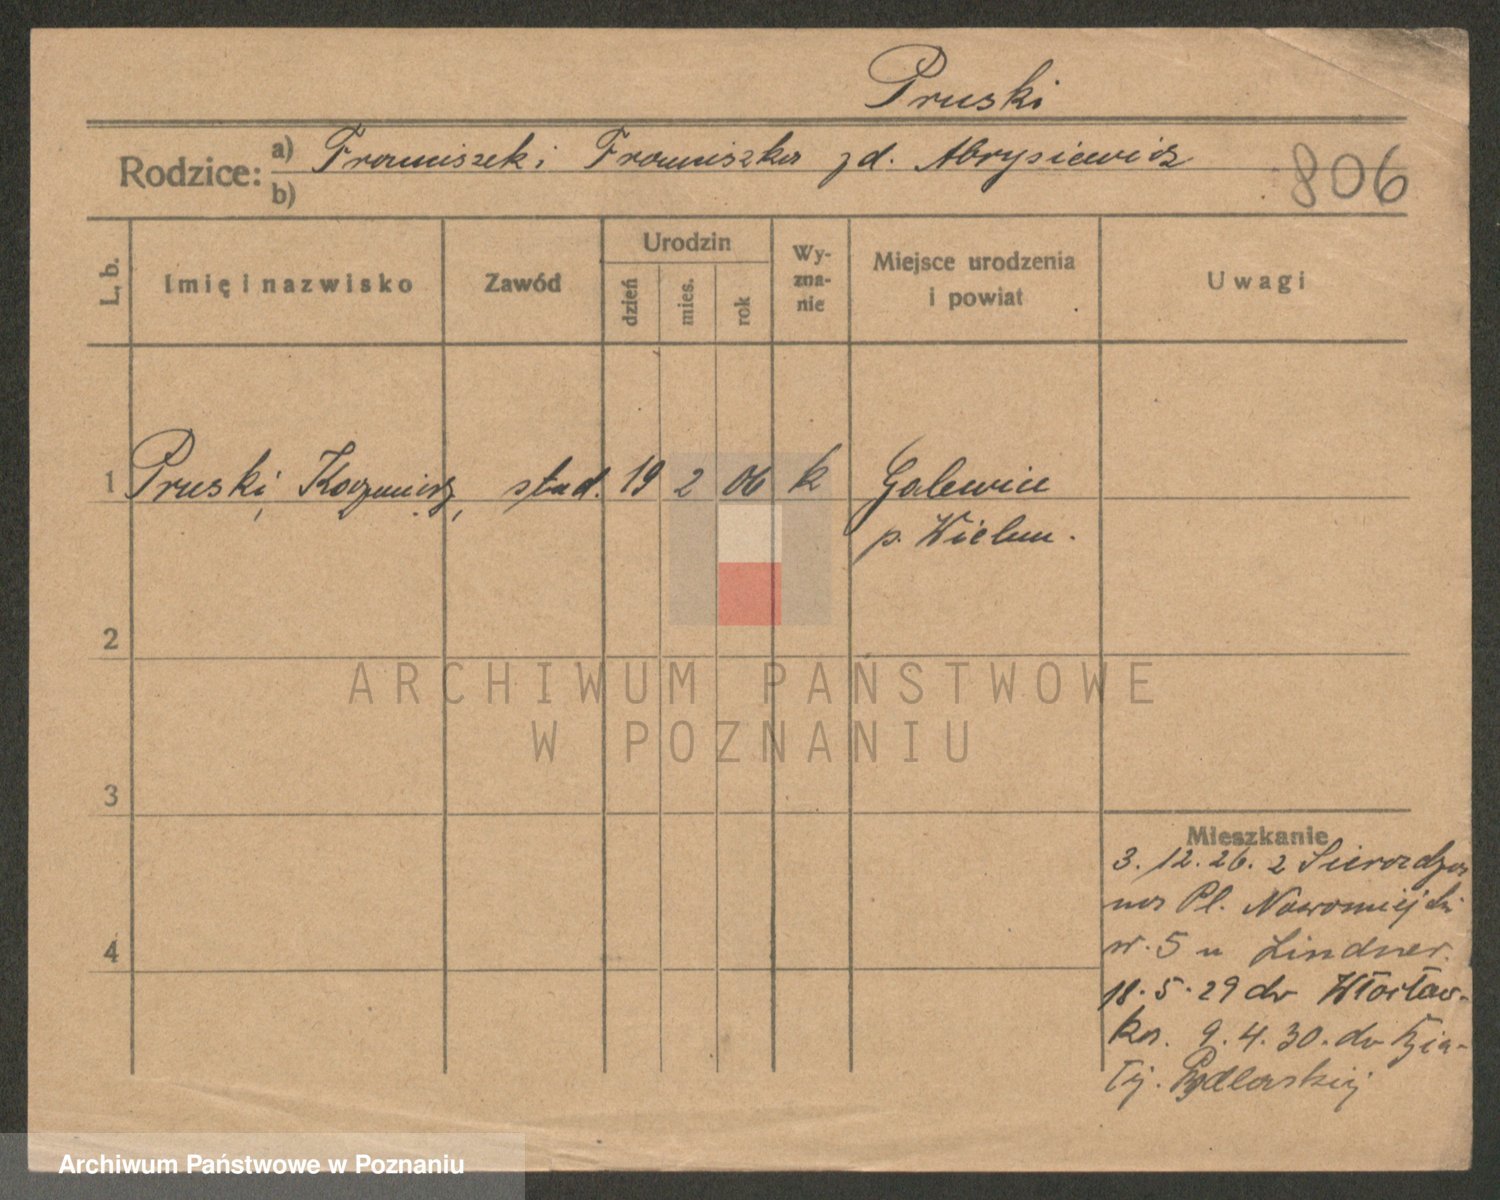 Pruski
Rodzice: a) Franciszek i Franciszka zd. Abrysiewicz
b)
806
L. b.
Imię i nazwisko
Zawód
Urodzin
dzień
mies.
rok
Wy-
zna-
nie
Miejsce urodzenia
i powiat
Uwagi
1 Pruski, Kazimierz, stud. 19 2 06 k Galewice
p. Wielun.
2
ARCHIWUM PAŃSTWOWE
W POZNANIU
3
Mieszkanie
3. 12. 26. z Sieradza
na Pl. Nowomiejski
nr. 5 u Lindner.
4
18. 5. 29 do Włocław-
ka. 9. 4. 30. do Bia-
łej Podlaskiej
Archiwum Państwowe w Poznaniu